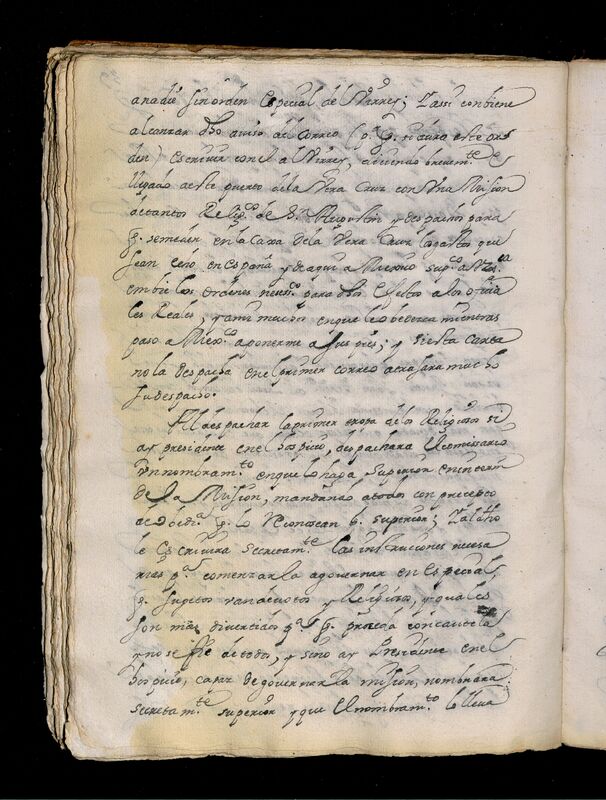 anadie sin orden Especial del Virrey; I assi conbiene
alcanzar dho aviso al Correo (pa. q. segura este or
den) Escrivir con el al Virrey, diciendo brevemte. Es
llegado a este puerto de la Vera Cruz con una Mision
de tantos Religos. de S. Augustin y despachos para
q. se me den en la Caxa de la Vera Cruz los gastos que
sean en España y de aqui a Mexico supco. a V. Exa.
embie los ordenes nesesos. para dhos Efectos a los oficia
les Reales, y a mi muchos en que le obedezca mientras
paso a Mexo. a ponerme a sus pies; y si esta Carta
no la despacha en el primer correo atrasara mucho
su despacho.
Al despachar la primer tropa de los Religiosos si
ay presidente en el hospicio, despachara el comissario
Un nombramto. en que lo haga Superior
de la Mision, mandando a todos con precepto
de obedia. q. lo reconoscan p. superior; I al dho
le Escrivira Secretamte. las instrucciones necesa
rias pa. comenzarla a governar en Especial,
q. sugetos van devotos y Religiosos, y quales
son mas divertidos pa. q. proceda con cautela
y no se fie de todos, y sino ay Presidente en el
hospicio, capaz de governar la mision, nombrara
secretamte. superior y que el nombramto. lo lleva